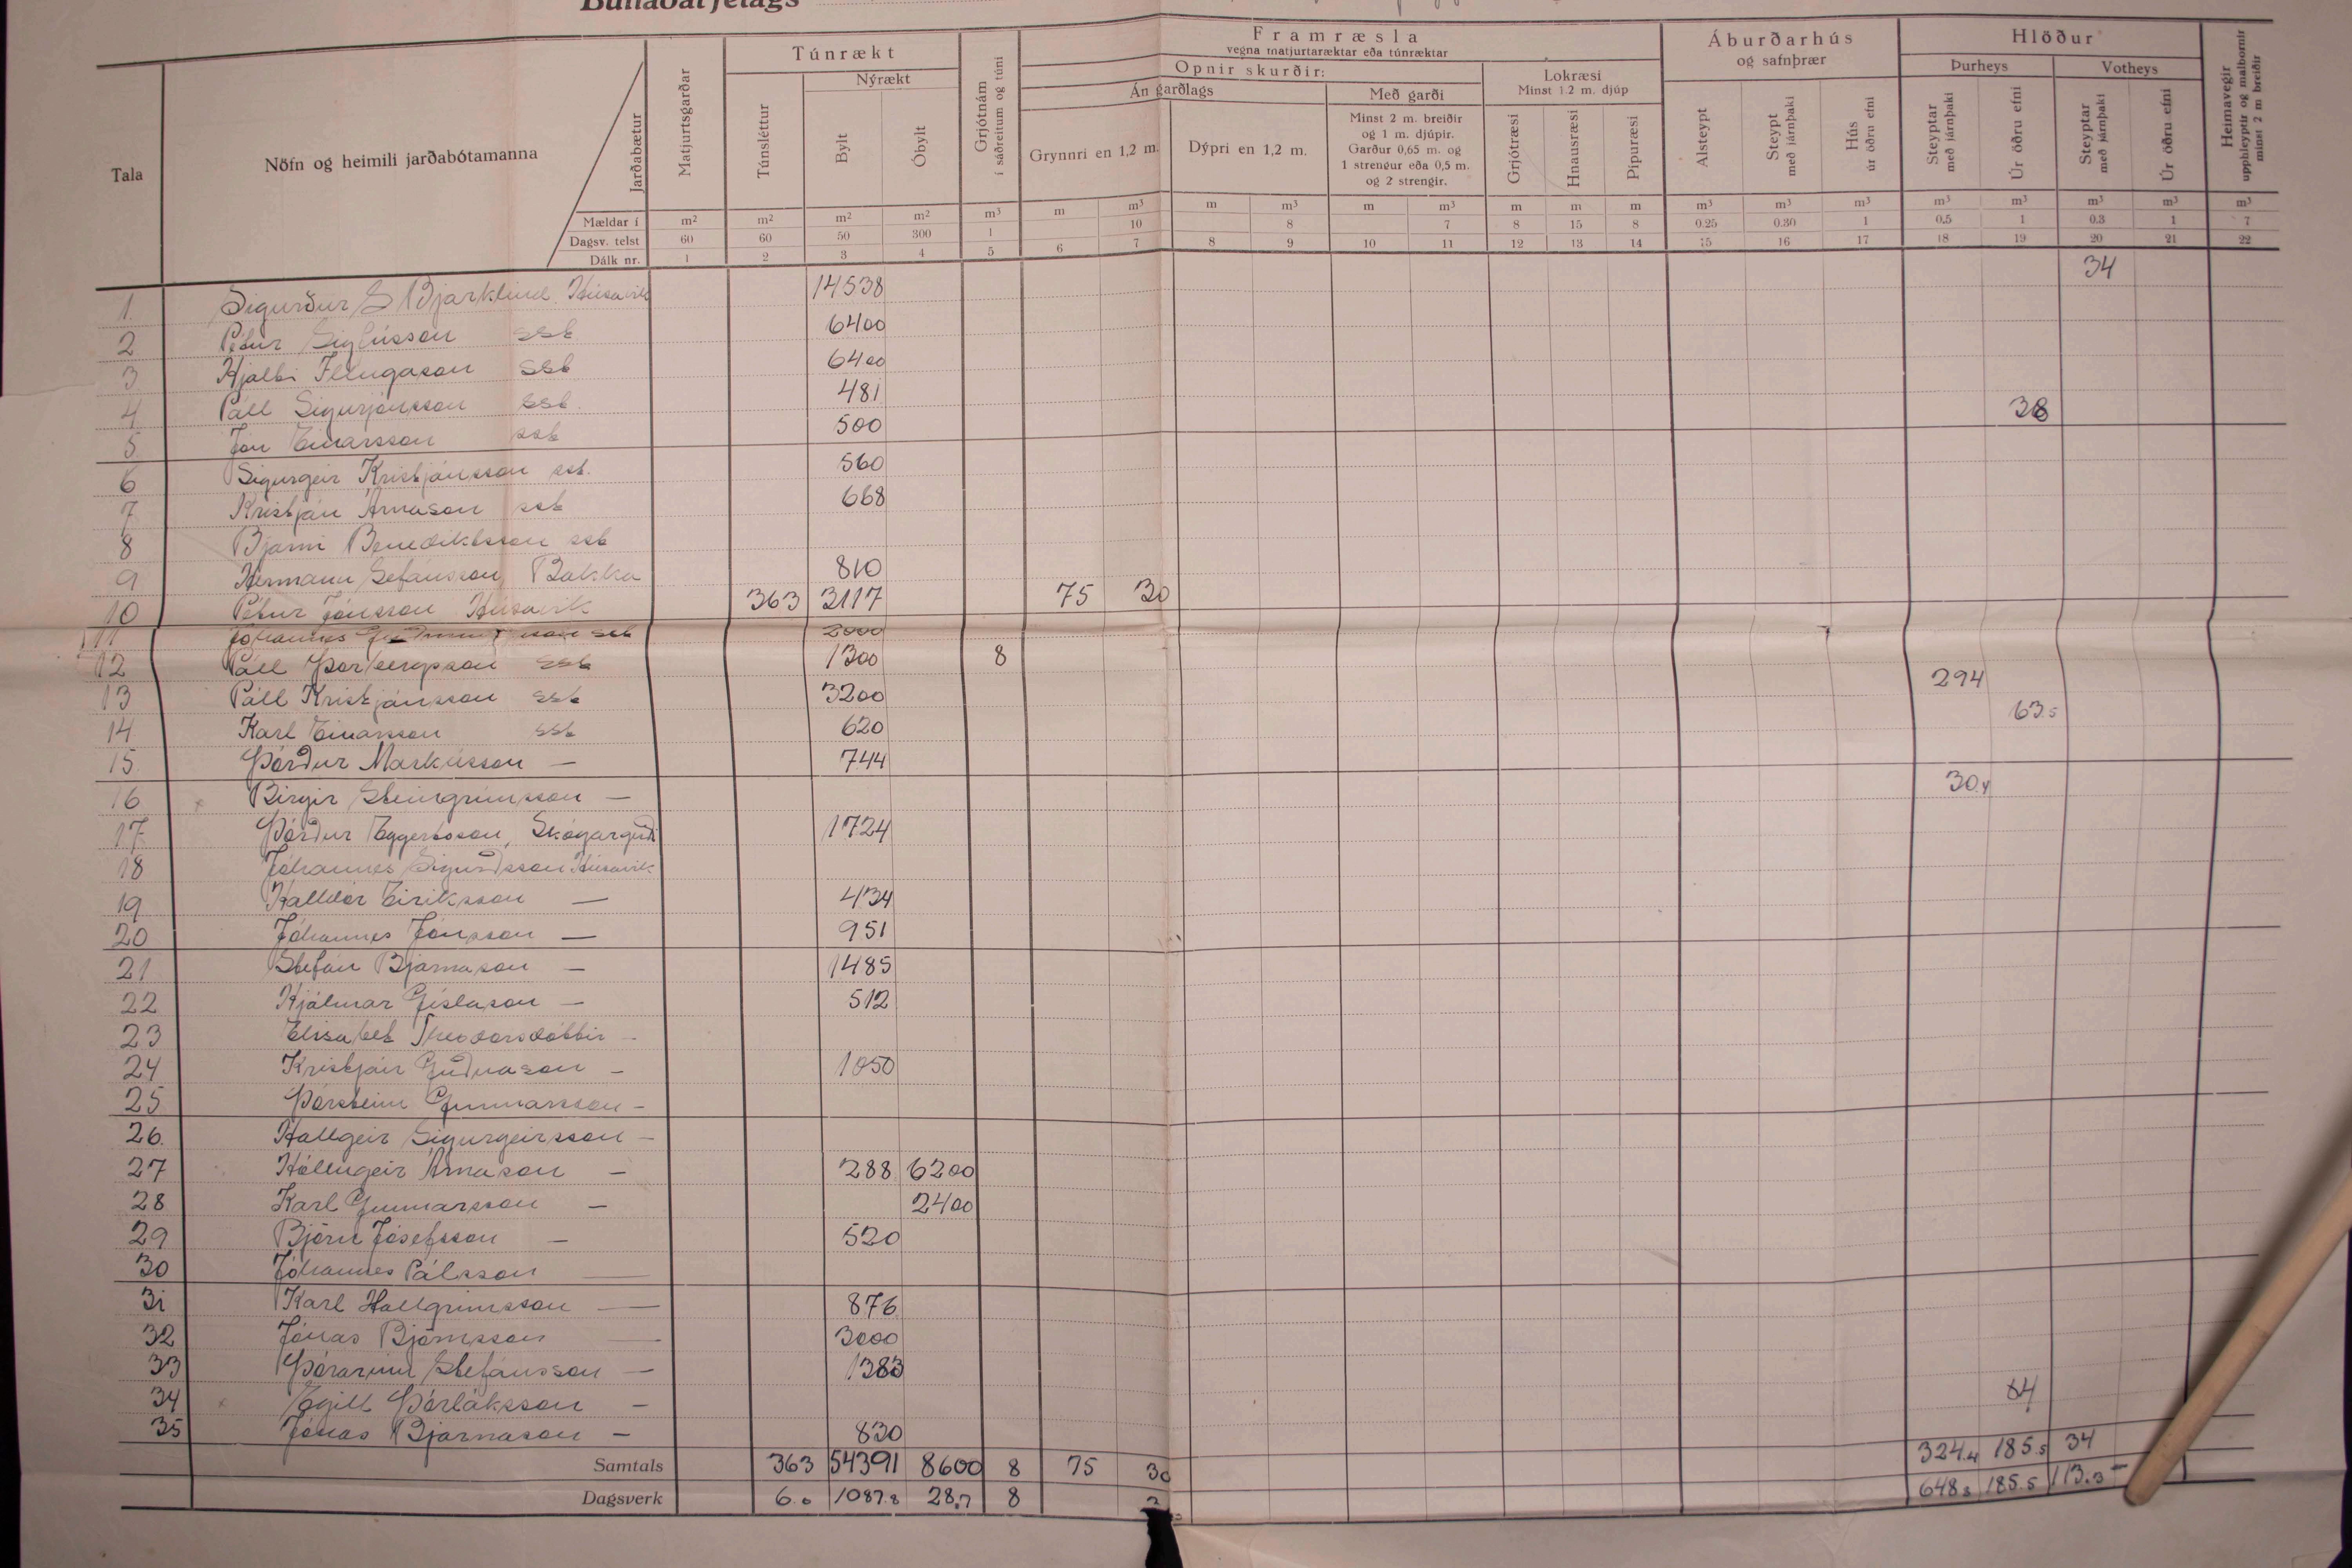 Búnaðarfjelags
Tala
Nöfn og heimili jarðabótamanna
Jarðabætur
Mældar í
Dagsv. telst
Dálk nr.
Matjurtsgarðar
Túnrækt
Túnsléttur
Nýrækt
Bylt
Óbylt
Grjótnám
í sáðreitum og túni
Framræsla
vegna matjurtaræktar eða túnræktar
Opnir skurðir:
Án garðlags
Grynnri en 1,2 m.
Dýpri en 1,2 m.
Með garði
Minst 2 m. breiðir
og 1 m. djúpir.
Garður 0,65 m. og
1 strengur eða 0,5 m.
og 2 strengir.
Lokræsi
Minst 1.2 m. djúp
Grjótræsi
Hnausræsi
Pípuræsi
Áburðarhús
og safnþrær
Alsteypt
Steypt
með járnþaki
Hús
úr öðru efni
Hlöður
Þurheys
Steyptar
með járnþaki
Úr öðru efni
Votheys
Steyptar
með járnþaki
Úr öðru efni
Heimavegir
upphleyptir og malbornir
minst 2 m breiðir
m² m² m² m² m³ m m³ m m³ m m³ m m m m³ m³ m³ m³ m³ m³ m³ m³
60 60 50 300 1 10 8 7 8 15 8 0.25 0.30 1 0.5 1 0.3 1 7
1 2 3 4 5 6 7 8 9 10 11 12 13 14 15 16 17 18 19 20 21 22
1 Sigurður S Bjarklind Húsavík 14538 34
2 Pétur Sigfússon sst 6400
3 Hjalti Illugason sst 6400
4 Páll Sigurjónsson sst. 481
5 Jón Einarsson sst 500 38
6 Sigurgeir Kristjánsson sst. 560
7 Kristján Árnason sst 668
8 Bjarni Benediktsson sst
9 Hermann Stefánsson, Bakka 810
10 Pétur Jónsson Húsavík 363 3117 75 30
11 Jóhannes Guðmundsson sst 2000
12 Páll Þorbergsson sst 1300 8
13 Páll Kristjánsson sst 3200 294
14 Karl Einarsson sst 620 63.5
15. Þórður Markússon — 744
16 Birgir Steingrímsson — 30.4
17 Þórður Eggertsson, Skógargerði 1724
18 Jóhannes Sigurðsson Húsavík
19 Halldór Eiríksson — 434
20 Jóhannes Jónsson — 951
21 Stefán Bjarnason — 1485
22 Hjálmar Gíslason — 512
23 Elísabet Theodorsdóttir –
24 Kristján Guðnason – 1050
25 Þórsteinn Gunnarsson –
26. Hallgeir Sigurgeirsson –
27 Hólmgeir Árnason – 288 6200
28 Karl Gunnarsson – 2400
29 Björn Jósefsson – 520
30 Jóhannes Pálsson —
31 Karl Hallgrímsson — 876
32 Jónas Björnsson — 3000
33 Þórarinn Stefánsson — 1383
34 Egill Þorláksson – 84
35 Jónas Bjarnason – 830
Samtals 363 54391 8600 8 75 30 324.4 185.5 34
Dagsverk 6.0 1087.8 28.7 8 648.8 185.5 113.3